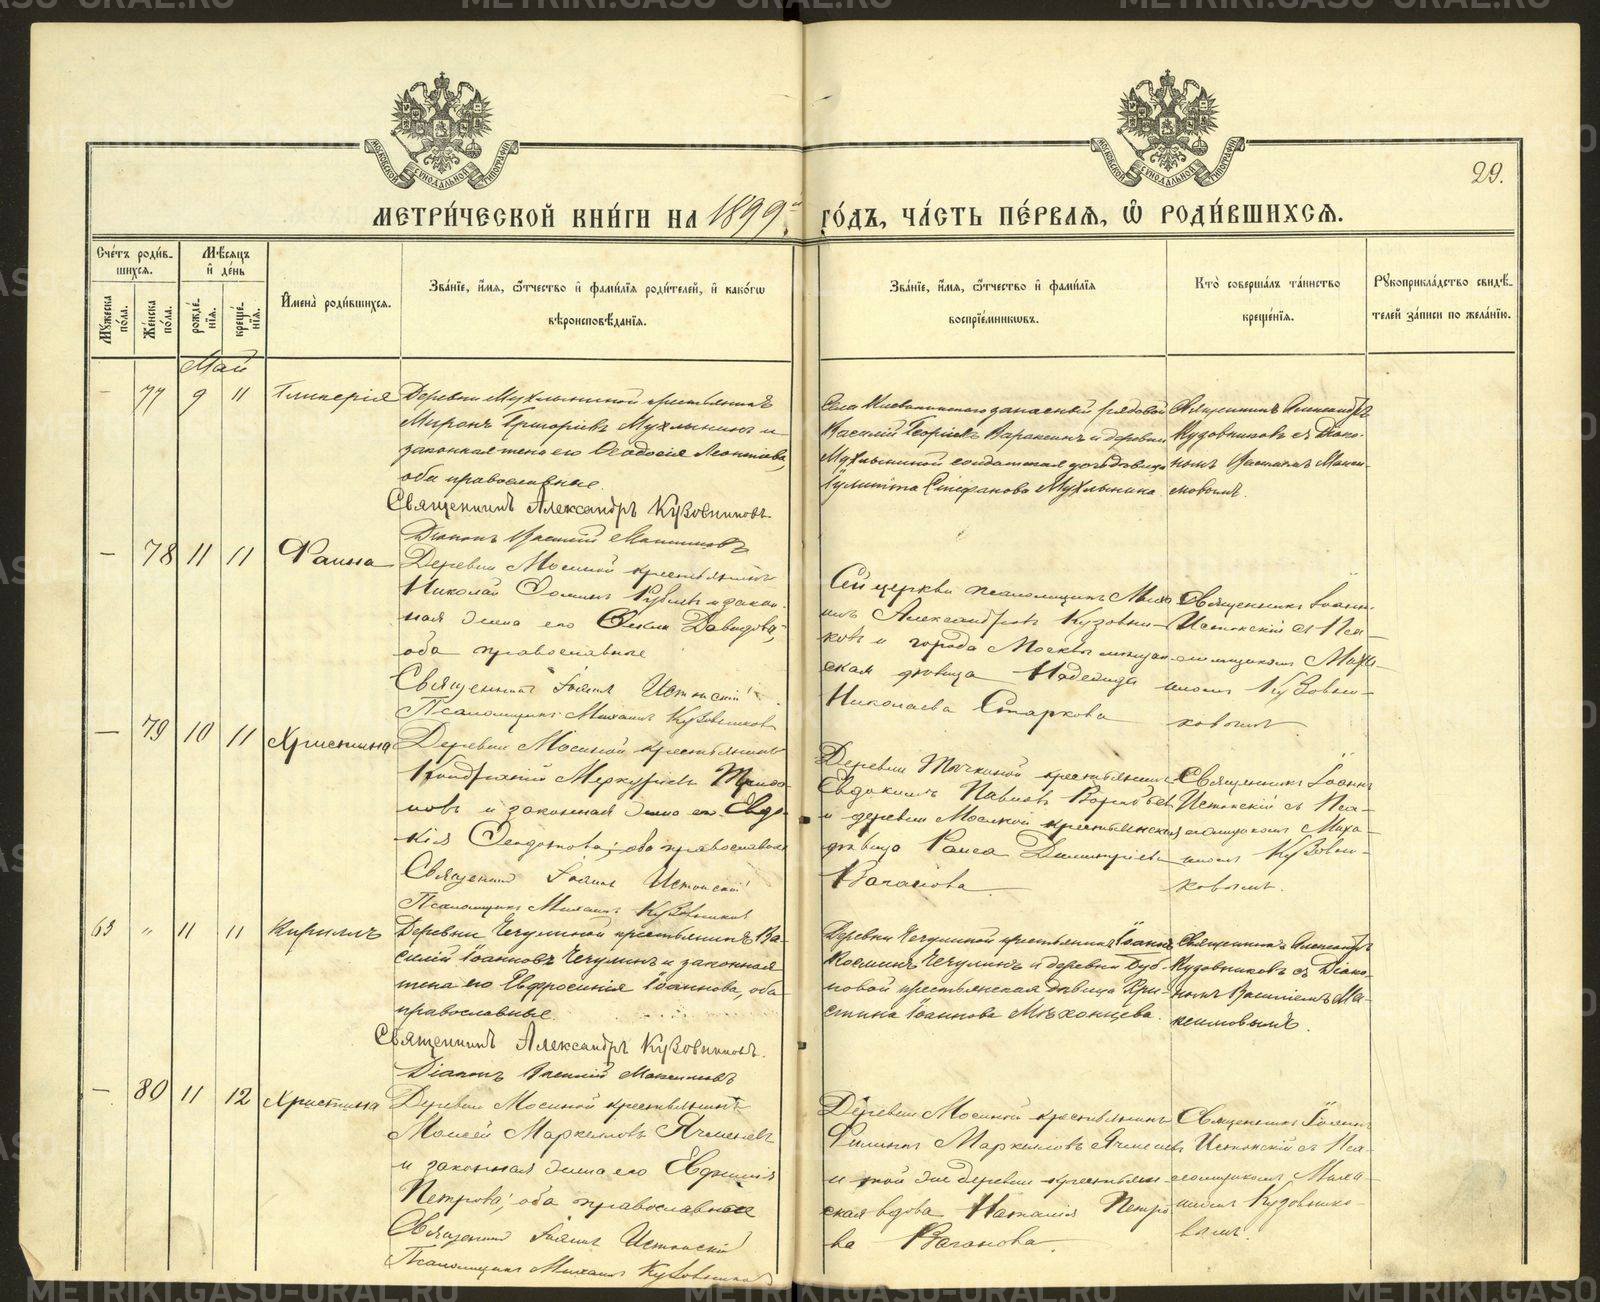 МЕТРИ́ЧЕСКОЙ КНИ́ГИ НА 1899 й ГО́ДЪ, ЧА́СТЬ ПЕ́РВАЯ, Ѿ РОДИ́ВШИХСЯ.
29.
Сче́тъ роди́в-
шихся.
Мѣсяцъ
и̂ де́нь
Мꙋ́жеска по́ла.
Же́нска по́ла.
рожде́нїя.
креще́нїя.
И̂мена̀ роди́вшихся.
Зва́нїе, и̂́мя, ѻ̂́тчество и̂ фами́лїя роди́телей, и̂ како́гѡ
вѣроисповѣ́данїя.
Зва́нїе, и̂́мя, ѻ̂́тчество и̂ фами́лїя
воспрїе́мникѡвъ.
Кто̀ соверша́лъ та́инство
креще́нїя.
Рꙋкоприкла́дство свидѣ́-
телей за́писи по жела́нїю.
Май
— 77 9 11 Гликерія
Деревни Мухлыниной крестьянинъ
Миронъ Григоріевъ Мухлынинъ и
законная жена его Ѳеодосія Леонтіева,
оба православные.
Священникъ Александръ Кузовниковъ.
Діаконъ Василій Максимовъ
Василій Георгіевъ Вараксинъ и деревни
Мухлыниной солдатская дочь дѣвица
Іулитта Стефанова Мухлынина
Священникъ Александръ
Кузовниковъ съ Діако-
номъ Василіемъ Макси-
мовымъ.
— 78 11 11 Фаина
Деревни Мосиной крестьянинъ
Николай Ѳоминъ и закон-
ная жена его Давидова,
оба православные
Священникъ Іоаннъ Истокскій
Псаломщикъ Михаилъ Кузовниковъ
Сей церкви псаломщикъ Миха-
илъ Александровъ Кузовни-
ковъ и города Москвы мѣщан-
ская дѣвица Надежда
Николаева Старкова
Священникъ Іоаннъ
Истокскій съ Пса-
ломщикомъ Миха-
иломъ Кузовни-
ковымъ.
— 79 10 11 Христина
Деревни Мосиной крестьянинъ
Меркуріевъ
и законная жена его Евдо-
кія оба православные
Священникъ Іоаннъ Истокскій
Псаломщикъ Михаилъ Кузовниковъ
Деревни крестьянинъ
Евдокимъ Павловъ Воробьевъ
и деревни Мосиной крестьянская
дѣвица Раиса Димитріева
Ваганова
Священникъ Іоаннъ
Истокскій съ Пса-
ломщикомъ Миха-
иломъ Кузовни-
ковымъ.
63 " 11 11 Кириллъ
Деревни Чечулиной крестьянинъ Ва-
силій Іоанновъ Чечулинъ и законная
жена его Евфросинія Іоаннова, оба
православные.
Священникъ Александръ Кузовниковъ.
Діаконъ Василій Максимовъ
Деревни Чечулиной крестьянинъ Іоаннъ
Косминъ Чечулинъ и деревни Буб-
новой крестьянская дѣвица Хри-
стина Іоаннова Мѣхонцева.
Священникъ Александръ
Кузовниковъ съ Діако-
номъ Василіемъ Ма-
ксимовымъ.
— 80 11 12 Христина
Деревни Мосиной крестьянинъ
Моисей Маркеловъ Ячменевъ
и законная жена его Евфимія
Петрова; оба православные
Священникъ Іоаннъ Истокскій
Псаломщикъ Михаилъ Кузовниковъ
Деревни Мосиной крестьянинъ
Филиппъ Маркеловъ Ячменевъ
и той же деревни крестьян-
ская вдова Наталія Петро-
ва Ваганова.
Священникъ Іоаннъ
Истокскій съ Пса-
ломщикомъ Миха-
иломъ Кузовнико-
вымъ.
METRIKI.GASO-URAL.RU